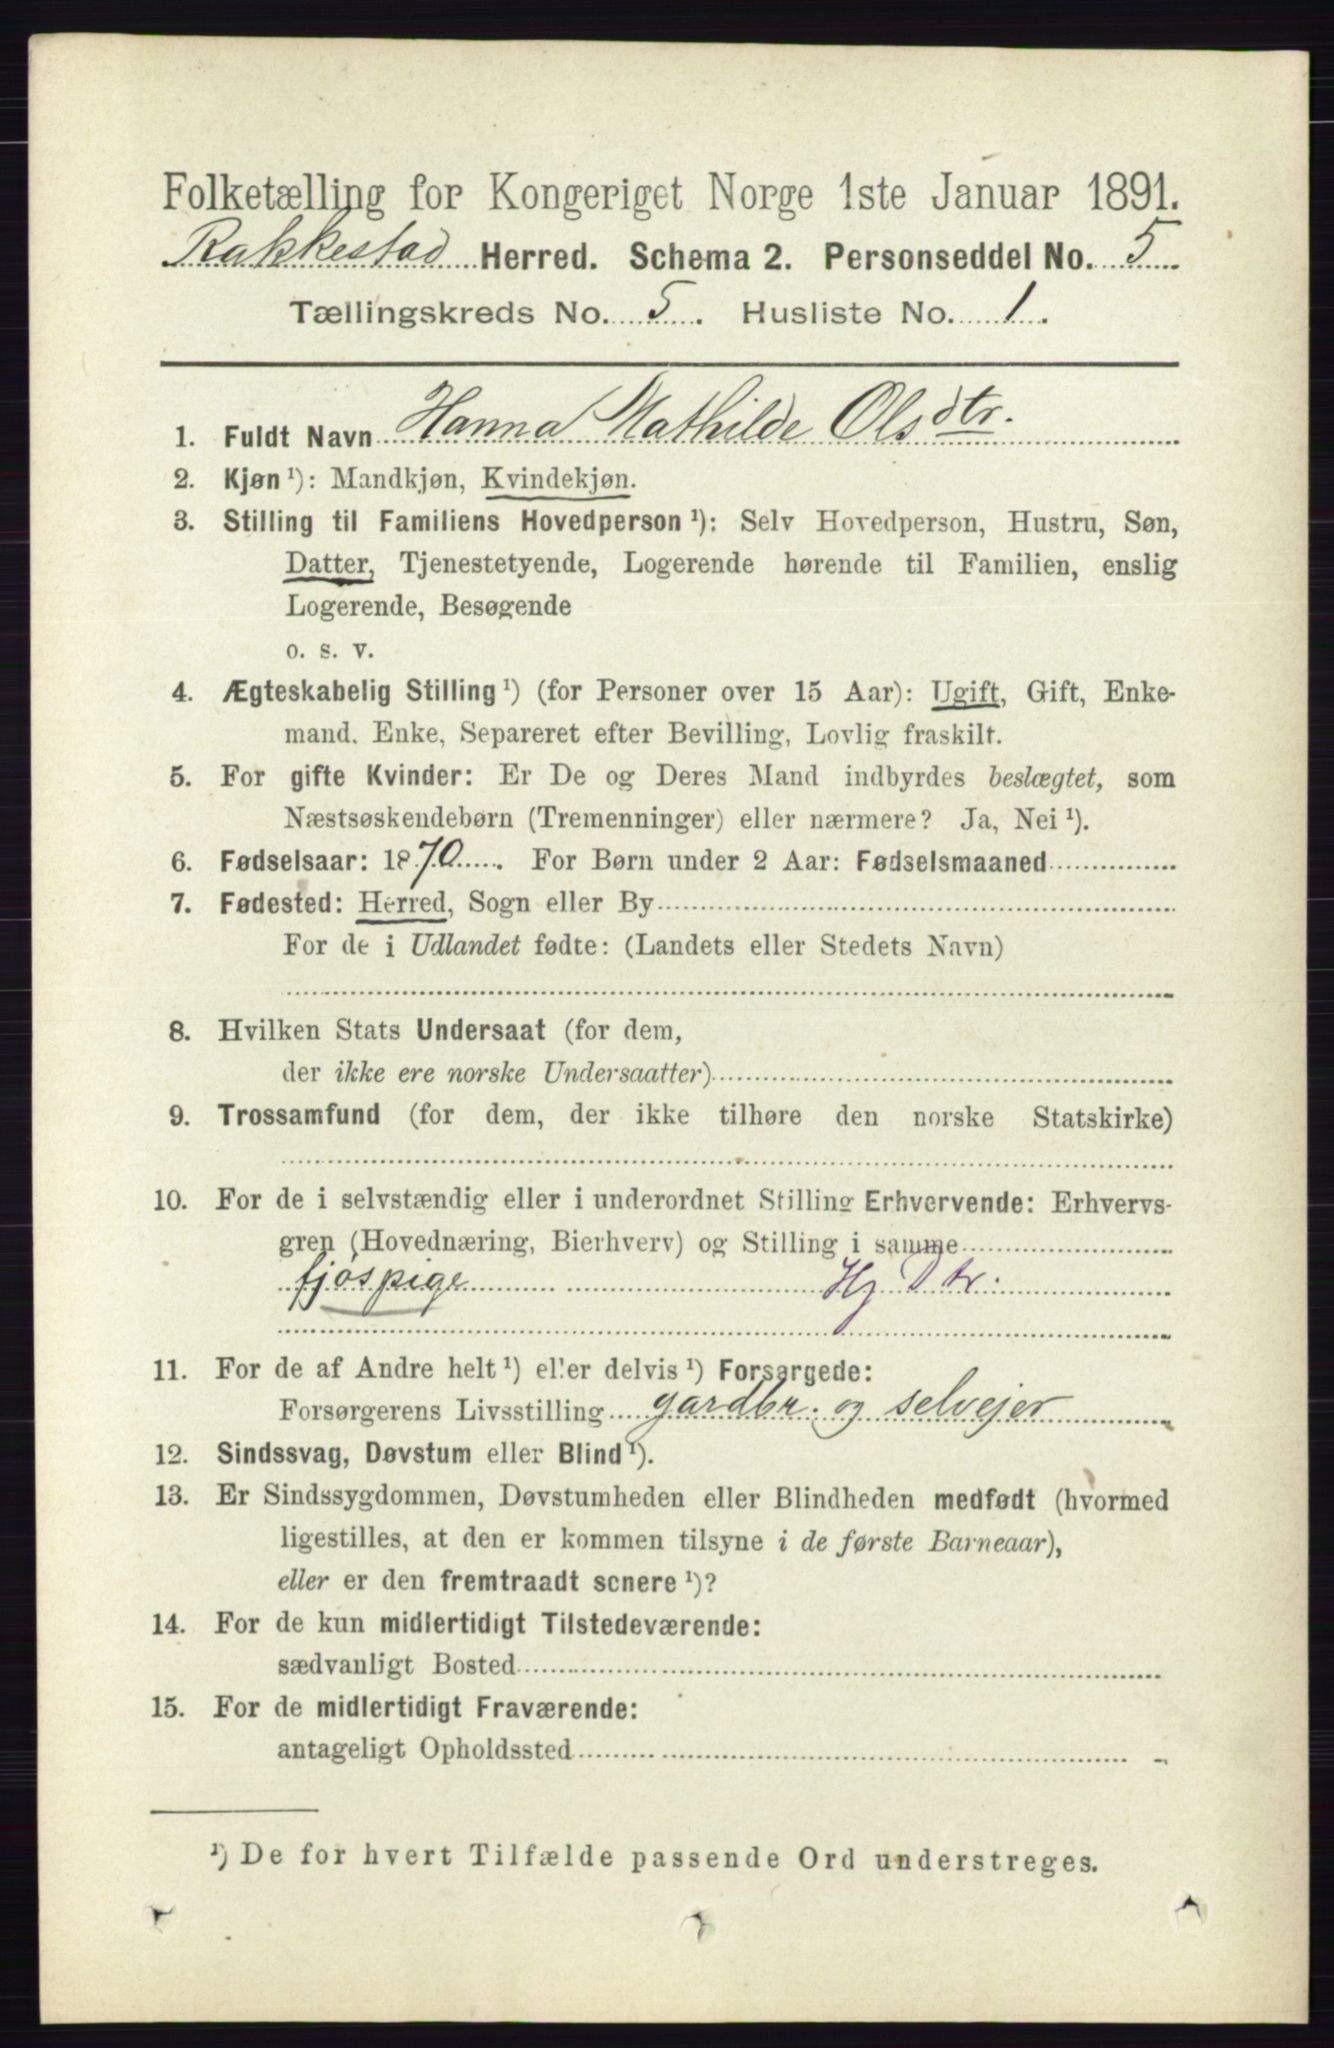 Folketælling for Kongeriget Norge 1ste Januar 1891.
Rakkestad Herred. Schema 2. Personseddel No. 5
Tællingskreds No. 5. Husliste No. 1.
1. Fuldt Navn Hanna Mathilde Olsdtr.
2. Kjøn ¹): Mandkjøn, Kvindekjøn.
3. Stilling til Familiens Hovedperson ¹): Selv Hovedperson, Hustru, Søn,
Datter, Tjenestetyende, Logerende hørende til Familien, enslig
Logerende, Besøgende
o. s. v.
4. Ægteskabelig Stilling ¹) (for Personer over 15 Aar): Ugift, Gift, Enke-
mand. Enke, Separeret efter Bevilling, Lovlig fraskilt.
5. For gifte Kvinder: Er De og Deres Mand indbyrdes beslægtet, som
Næstsøskendebørn (Tremenninger) eller nærmere? Ja, Nei ¹).
6. Fødselsaar: 1870. For Børn under 2 Aar: Fødselsmaaned
7. Fødested: Herred, Sogn eller By
For de i Udlandet fødte: (Landets eller Stedets Navn)
8. Hvilken Stats Undersaat (for dem,
der ikke ere norske Undersaatter)
9. Trossamfund (for dem, der ikke tilhøre den norske Statskirke)
10. For de i selvstændig eller i underordnet Stilling Erhvervende: Erhvervs-
gren (Hovednæring, Bierhverv) og Stilling i samme
fjøspige Hj Dtr.
11. For de af Andre helt ¹) eller delvis ¹) Forsørgede:
Forsørgerens Livsstilling gardbr. og selvejer
12. Sindssvag, Døvstum eller Blind ¹).
13. Er Sindssygdommen, Døvstumheden eller Blindheden medfødt (hvormed
ligestilles, at den er kommen tilsyne i de første Barneaar),
eller er den fremtraadt senere ¹)?
14. For de kun midlertidigt Tilstedeværende:
sædvanligt Bosted
15. For de midlertidigt Fraværende:
antageligt Opholdssted
¹) De for hvert Tilfælde passende Ord understreges.